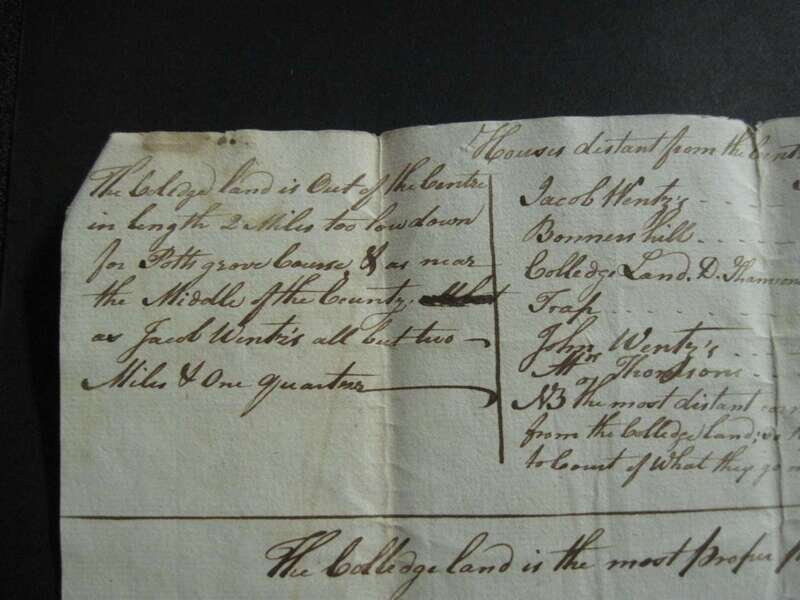 The Coledge land is Out of the Centre
in length 2 Miles too low down
for Pottsgrove Course, & as near
the Middle of the County,
as Jacob Wentz's all but two
Miles & One quarter
Houses distant from the Cent
Jacob Wentz's
Bonners hill
Colledge Land. D.
Trap
John Wentz's
or Thomsons
NB the most distant
from the Colledge land;
to Court of What they go
The Colledge land is the most proper